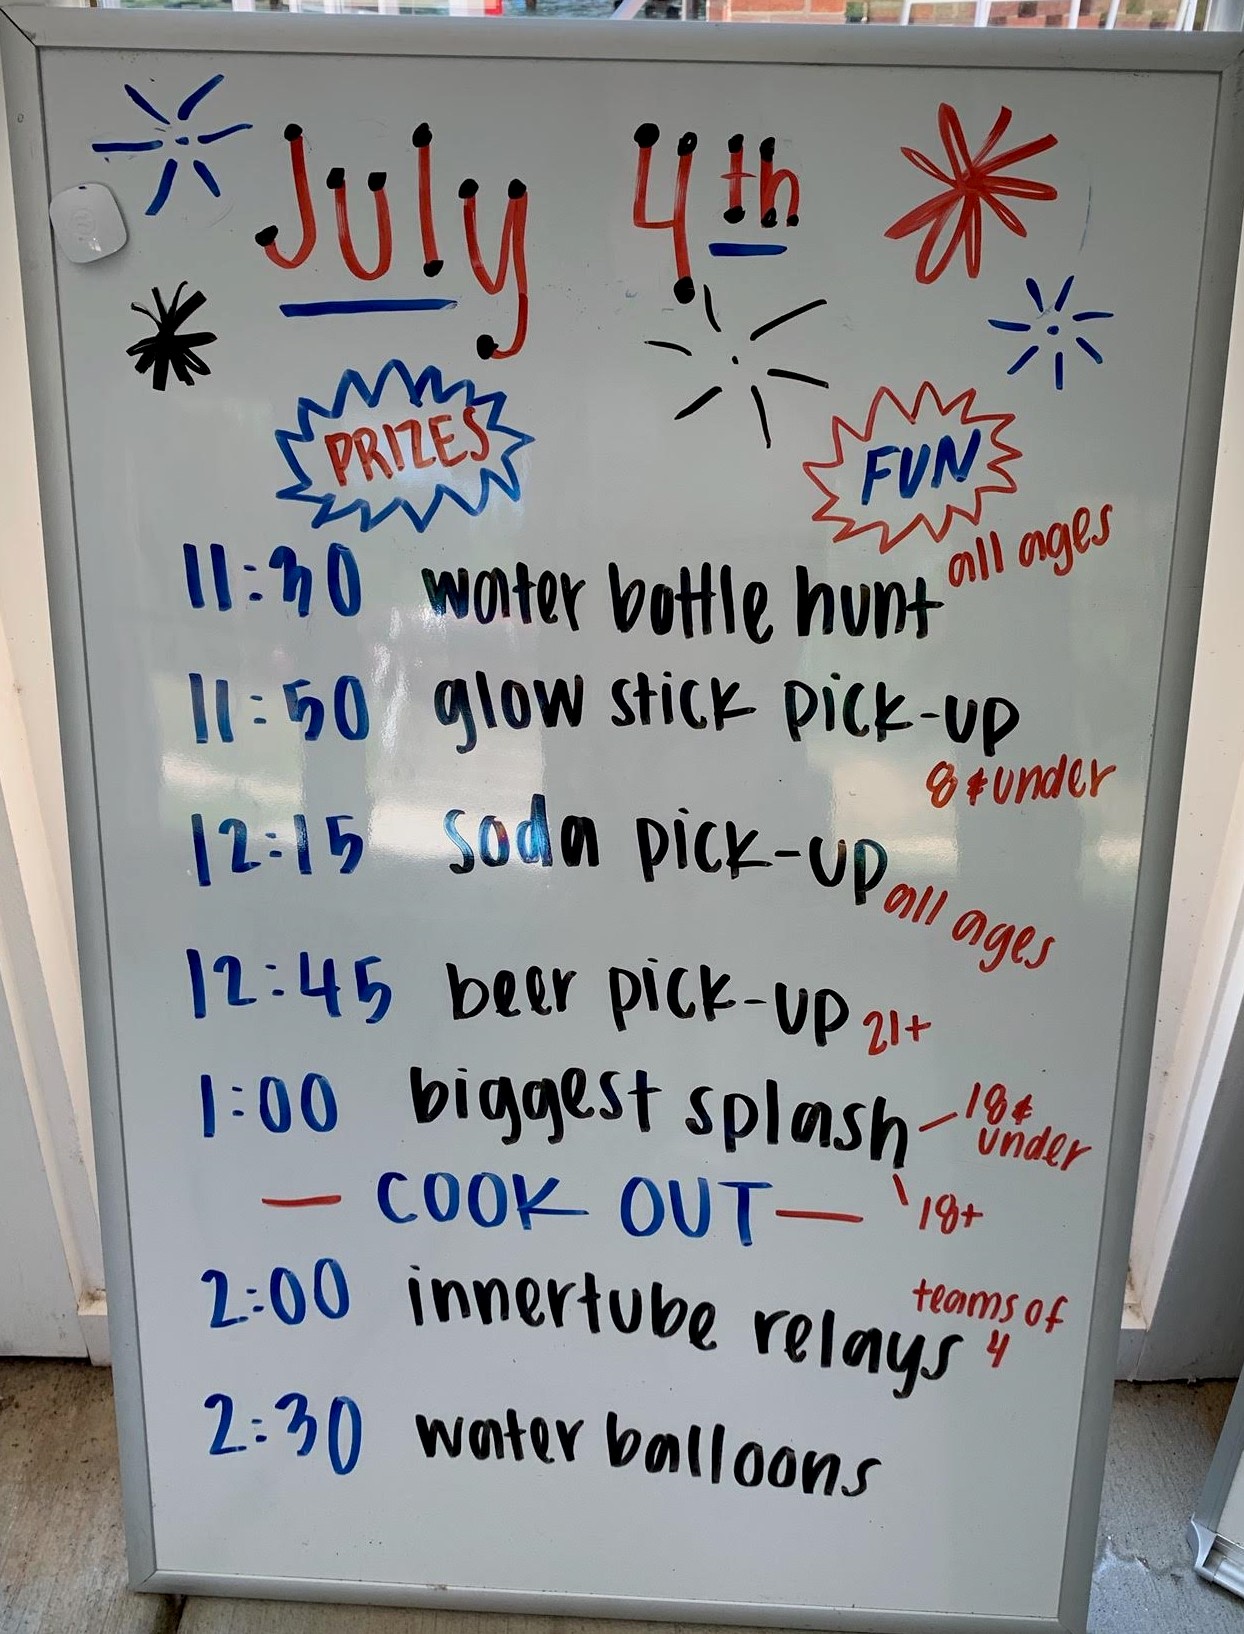 July 4th
PRIZES
FUN
11:30 water bottle hunt all ages
11:50 glow stick pick-up
8 & under
12:15 soda pick-up all ages
12:45 beer pick-up 21+
1:00 biggest splash - 18 &
under
— COOK OUT — 18+
2:00 innertube relays teams of
4
2:30 water balloons